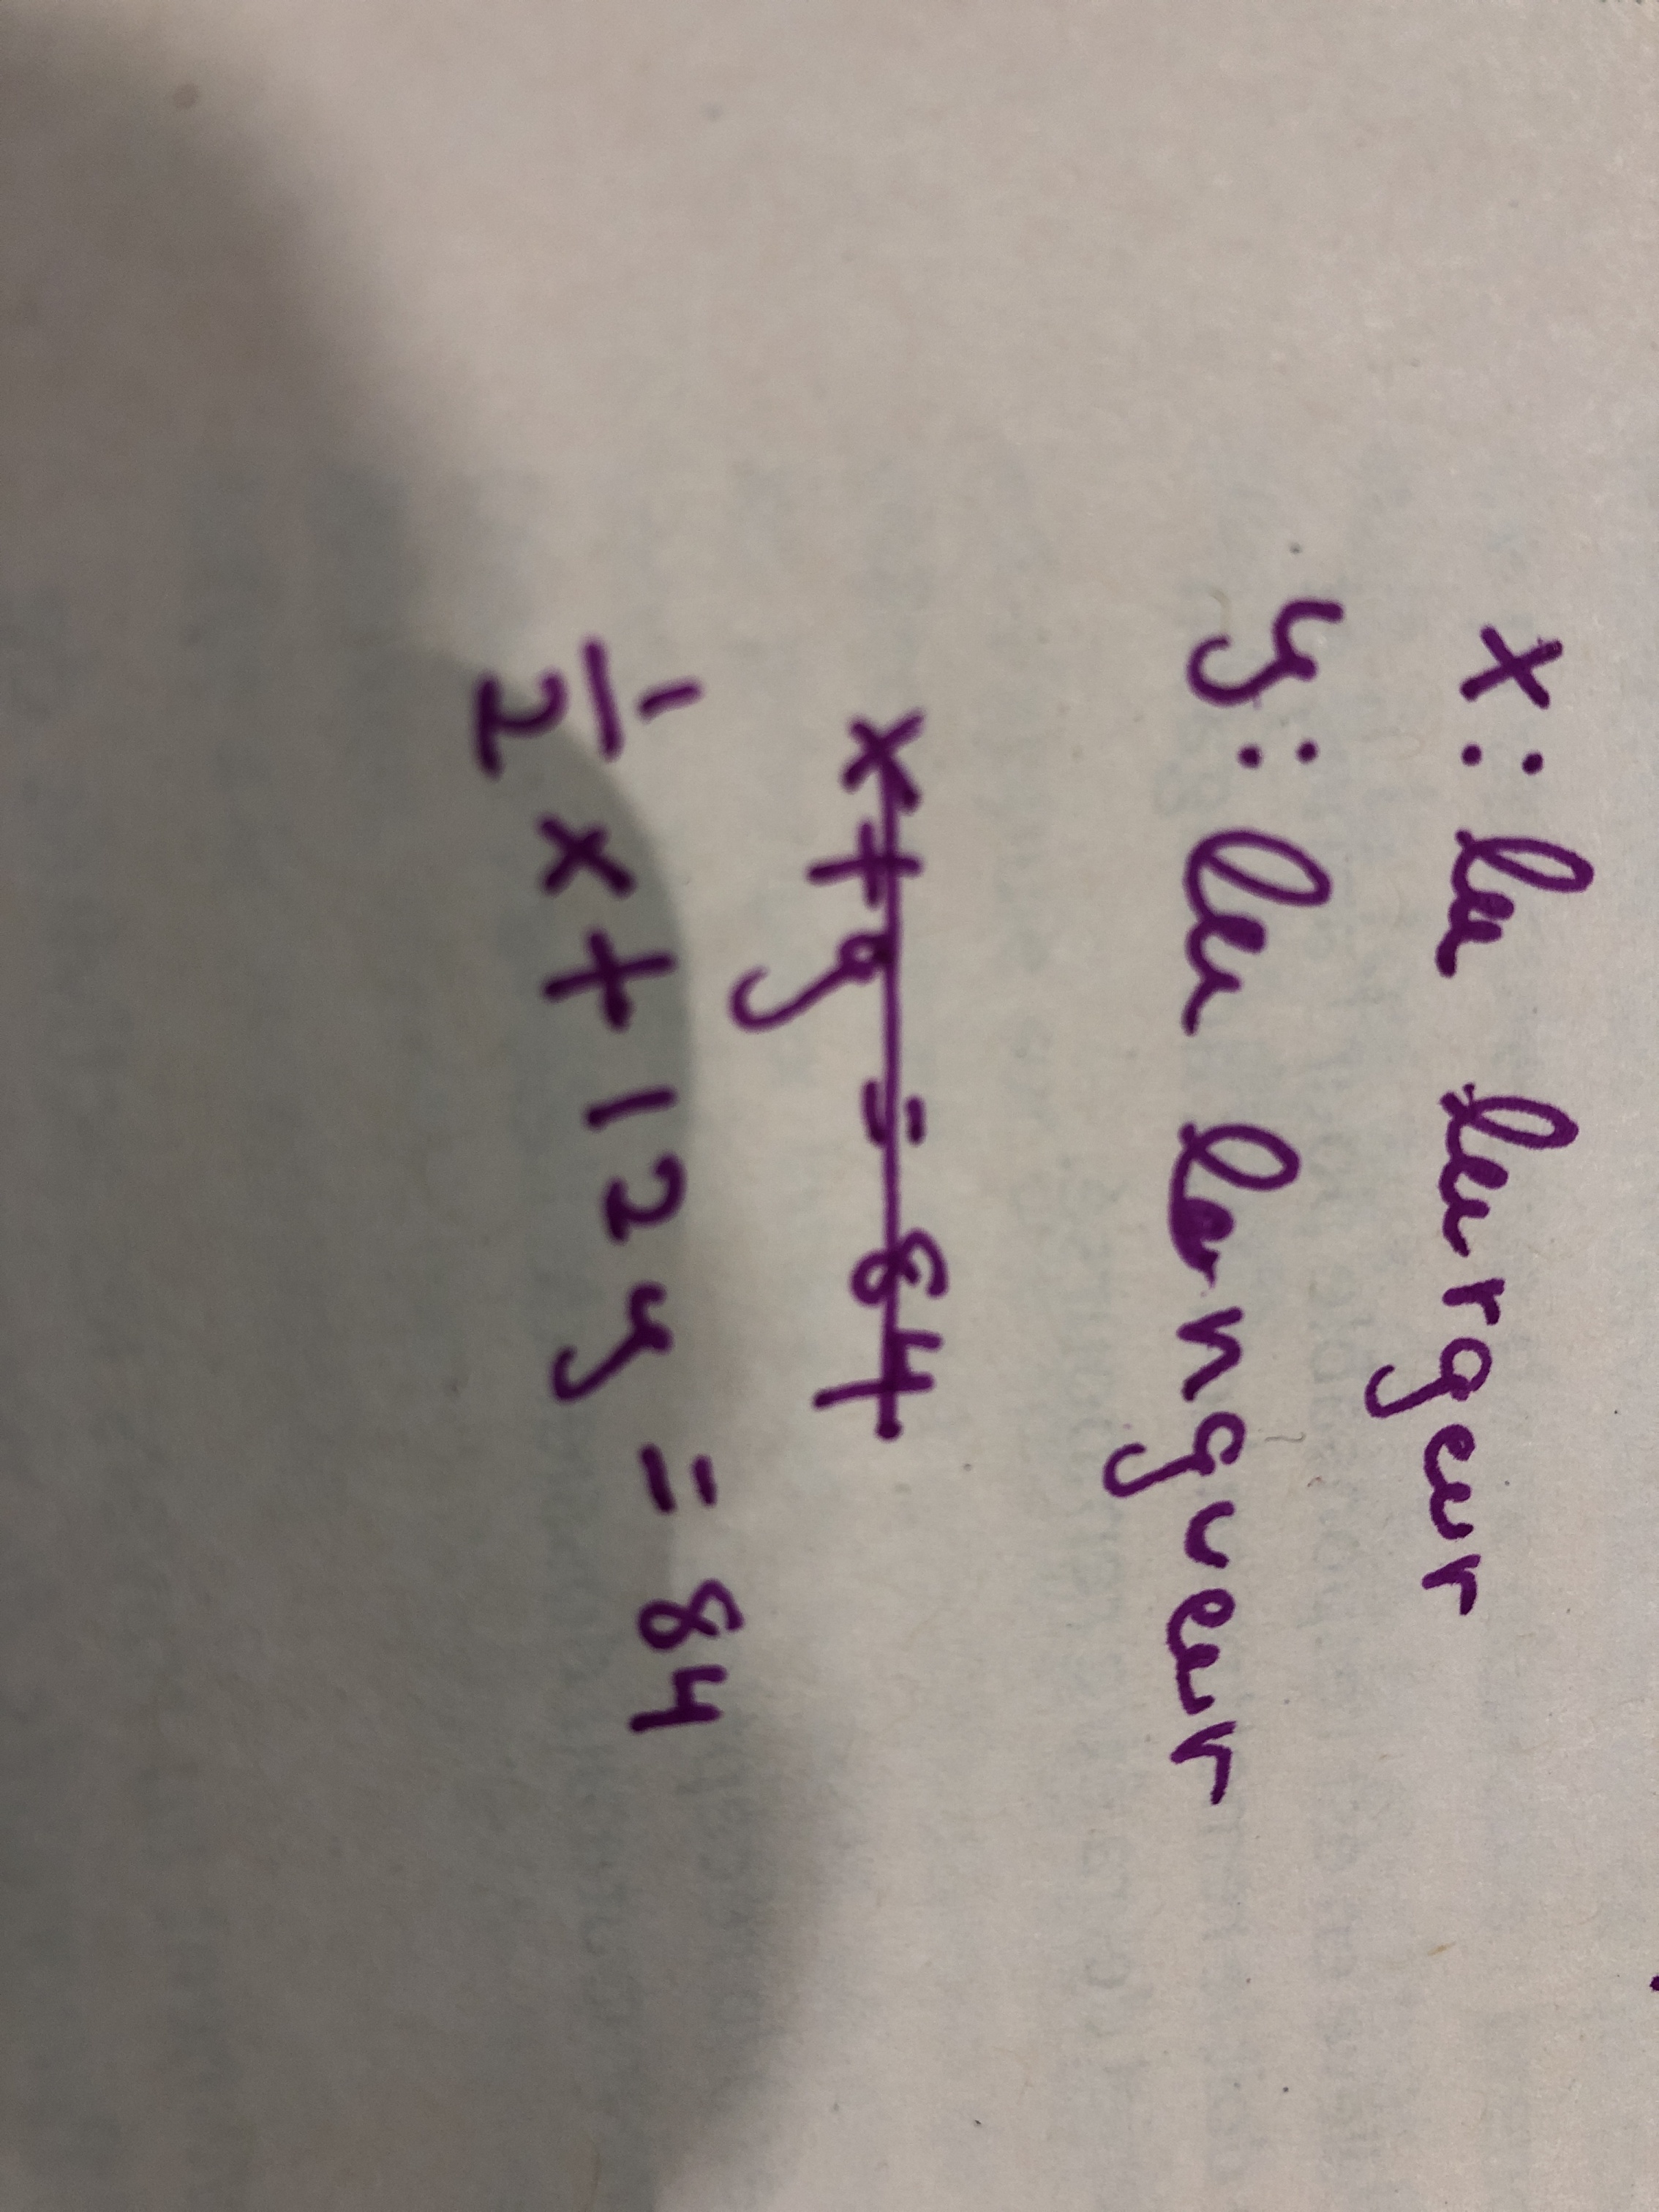 x : la largeur
y : la longueur
x + y = 84
1/2 x + 12 y = 84